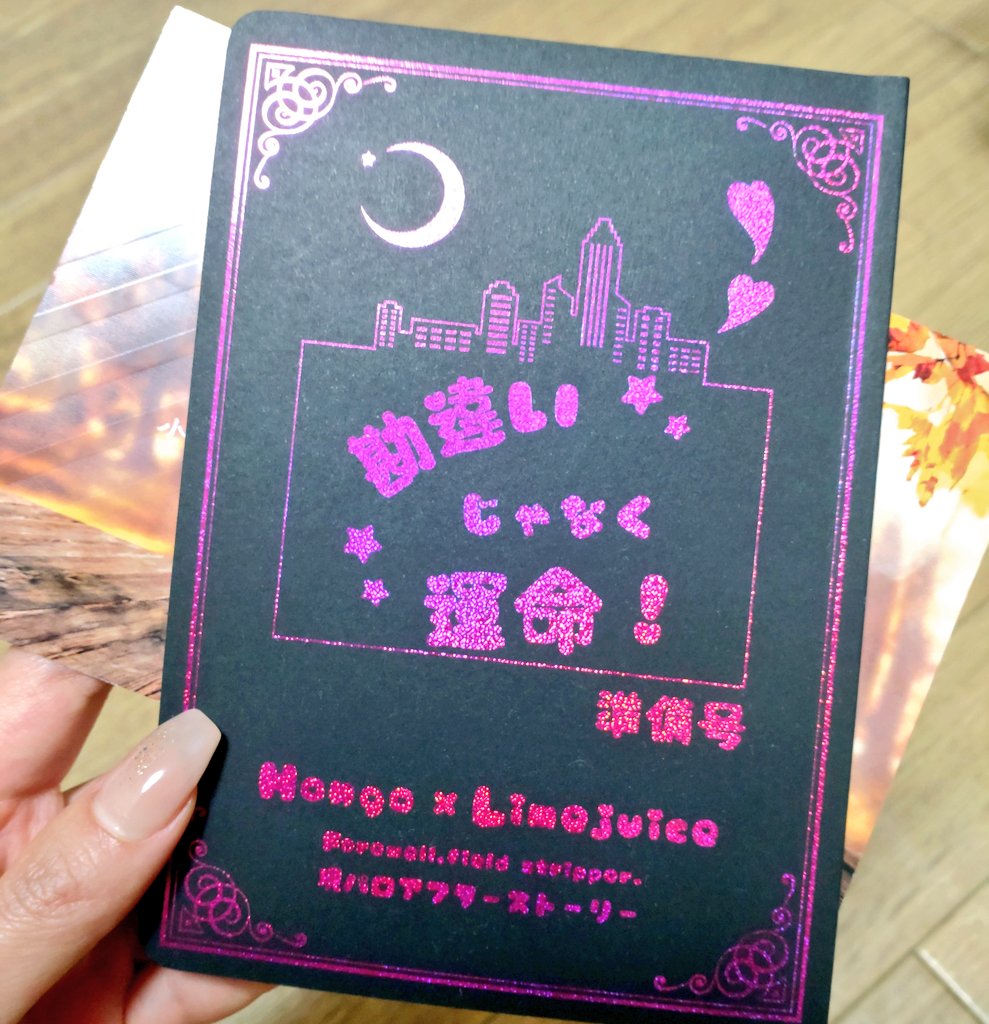 勘違い
じゃなく
運命!
準備号
Hongo x Limejuice
Farewell,field stripper.
現パロアフターストーリー